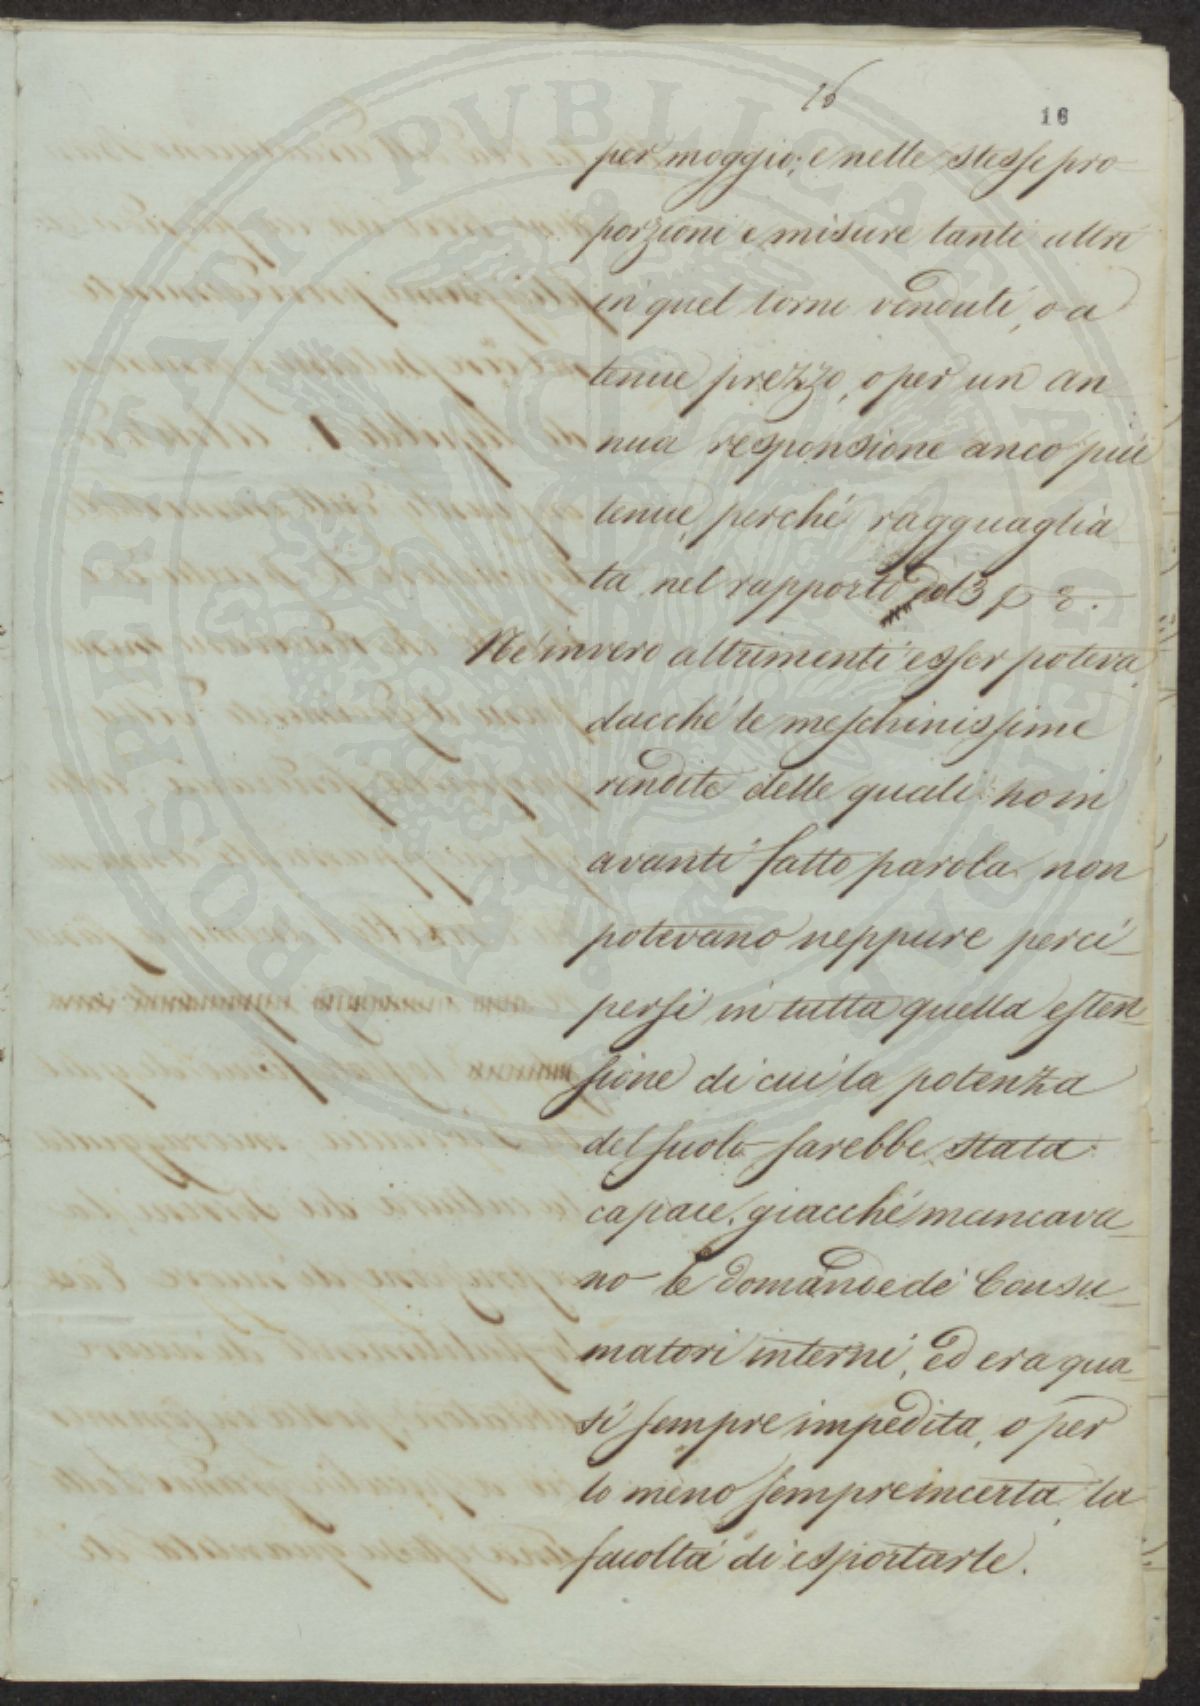 16
16
per moggio; e nelle stesse pro-
porzioni e misure tanti altri
in quel torno venduti, o a
tenue prezzo, o per un an-
nua responsione anco più
tenue, perché ragguaglia-
ta nel rapporto del 3 p
Né invero altrimenti esser poteva,
dacché le meschinissime
rendite delle quali ho in
avanti fatto parola non
potevano neppure perci-
persi in tutta quella esten-
sione di cui la potenza
del suolo sarebbe stata
capace, giacché mancava-
no le domande de' Consu-
matori interni, ed era qua-
si sempre impedita, o per
lo meno sempre incerta, la
facoltà di esportarle.